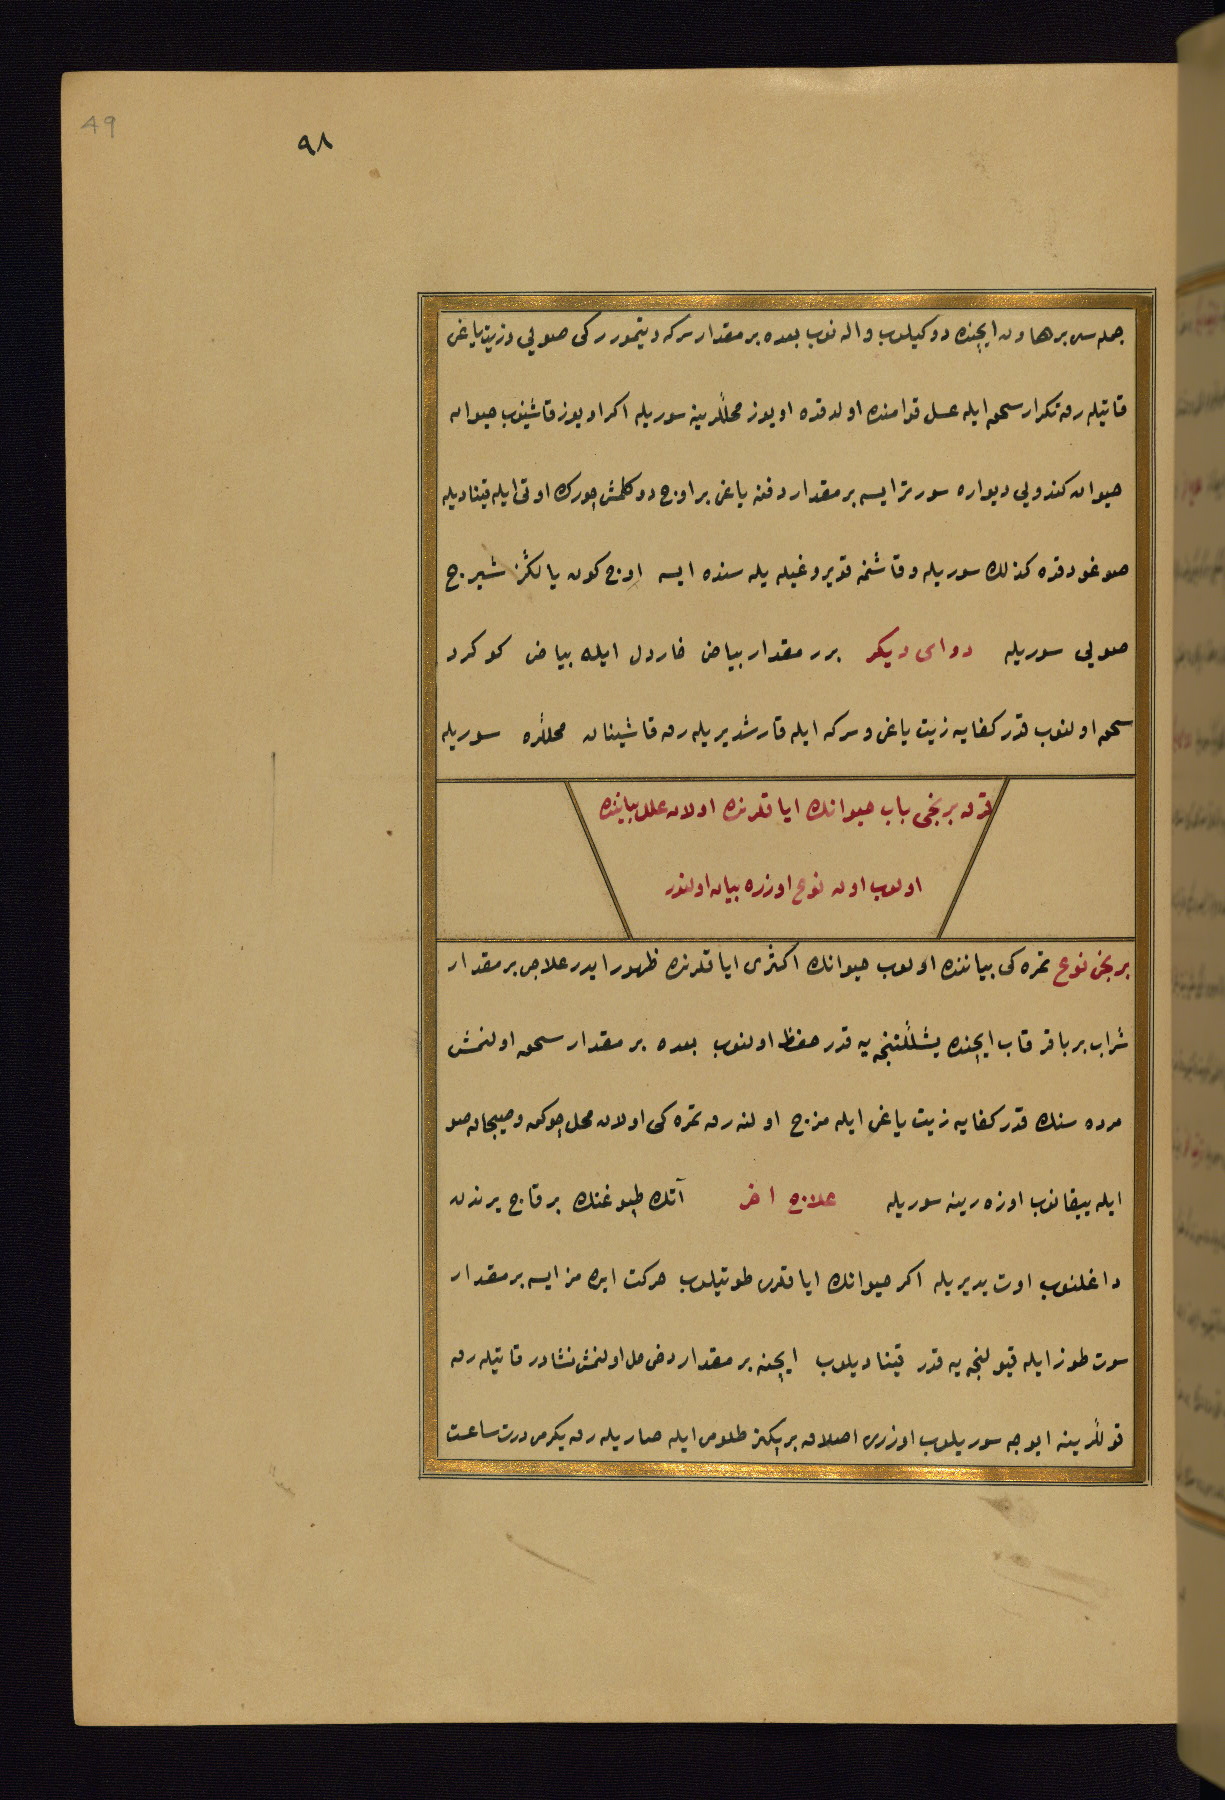 49
٩٨
جمله سی بر هاون ایچنده دوکیلوب والە نوب بعده بر مقدار سرکه و تیمور رکی صویی و زیت یاغی
قاتیله رق تکرار سحق ایله عسل قوامنده اولدقده اویوز محللرینه سوریله اکر اویوز قاشینوب حیوان
حیوان کندویی دیواره سورتر ایسه بر مقدار دفنه یاغی بر اوج دوکلمش چورك اوتی ایله قینادیله
صوغودقده کذلك سوریله و قاشنمه قویروغیله یله سنده ایسه اوج کون یالکز شیرج
صویی سوریله دوای دیکر برر مقدار بیاض خاردل ایله بیاض کوکرد
سحق اولنوب قدر کفایه زیت یاغی و سرکه ایله قارشدیریله رق قاشینان محللره سوریله
قرق برنجی باب حیوانك ایاقلرنده اولان علل بیاننده
اولوب اون نوع اوزره بیان اولنور
برنجی نوع تمره کی بیاننده اولوب حیوانك اکثری ایاقلرنده ظهور ایدر علاجی بر مقدار
شراب بر باقر قاب ایچنده یشللننجه یه قدر حفظ اولنوب بعده بر مقدار سحق اولنمش
مرده سنك قدر کفایه زیت یاغی ایله مزج اولنه رق تمره کی اولان محل چوکه و صیجاق صو
ایله ییقانوب اوزه رینه سوریله علاج اخر آتك طیوغنك بر قاج یرندن
داغلنوب اوت یدیریله اکر حیوانك ایاقلری طوتیلوب حرکت ایده مز ایسه بر مقدار
سوت طوز ایله قیولنجه یه قدر قینادیلوب ایچنه بر مقدار دخی حل اولنمش نشادر قاتیله رق
قوللرینه ایوجه سوریلوب اوزری اصلاق بر یکن طلوس ایله صاریله رق یکرمی درت ساعت